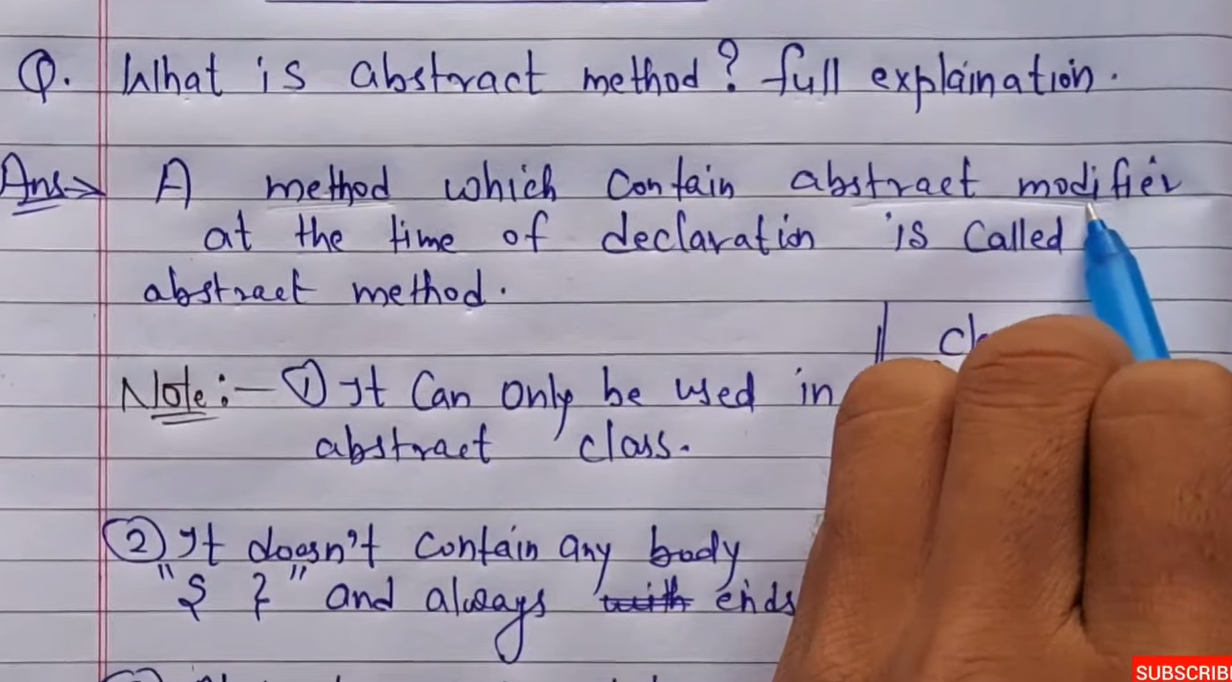 Q. What is abstract method? full explaination.
Ans→ A method which contain abstract modifier
at the time of declaration is called
abstract method.
Note:- ① It Can only be used in
abstract class.
② It doesn't contain any body
"{ }" and always with ends
SUBSCRIB